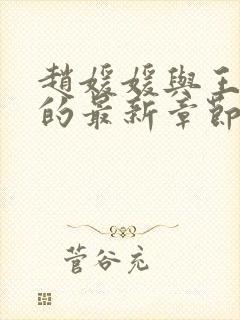 趙媛媛與王
的最新章節
菅谷充